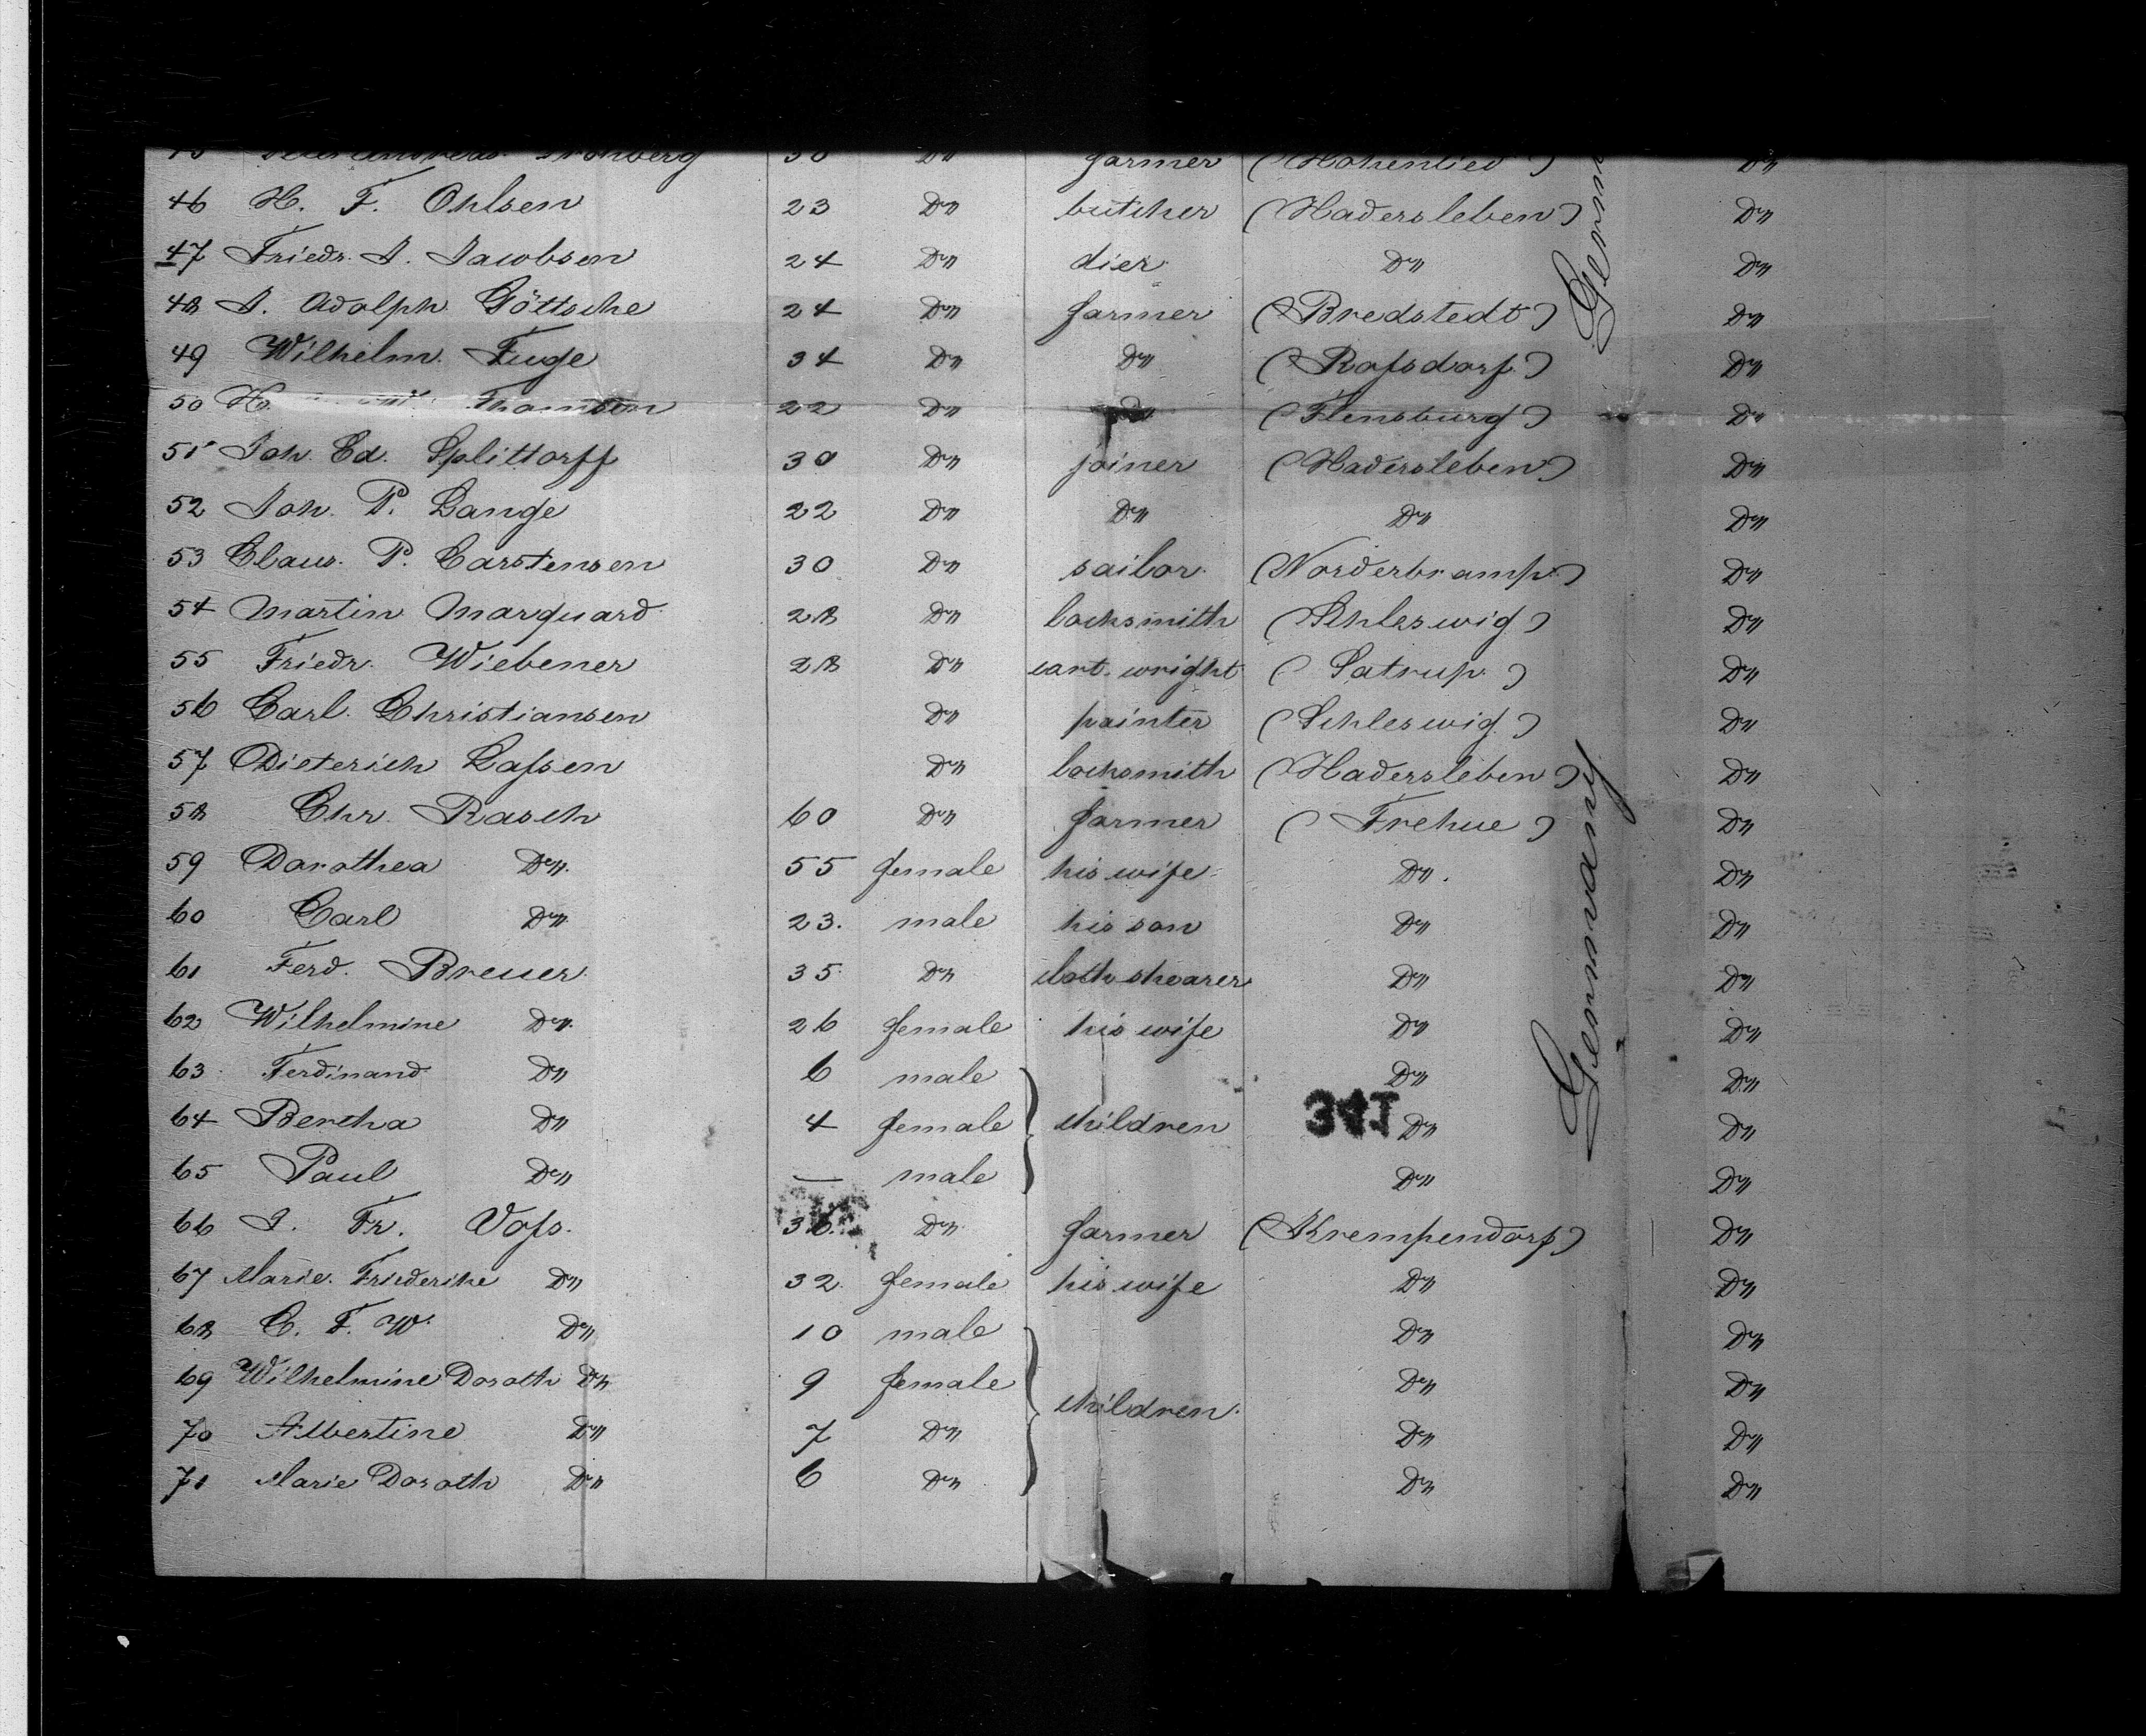 farmer (Hohenlied) Do
46 H. F. Ohlsen 23 Do butcher (Hadersleben) Do
47 Friedr. J. Jacobsen 24 Do dier Do Do
48 J. Adolph Göttsche 24 Do farmer (Bredstedt) Do
49 Wilhelm Fuge 34 Do Do (Rofsdorf) Do
50 H. Thomsen 22 Do Do (Flensburg) Do
51 Joh. Ed. Splittorff 30 Do joiner (Hadersleben) Do
52 Joh. P. Lange 22 Do Do Do Do
53 Claus. P. Carstensen 30 Do sailor (Norderbramp) Do
54 Martin Marquard 28 Do locksmith (Schleswig) Do
55 Friedr. Wiebener 28 Do cart. wright (Satrup) Do
56 Carl. Christiansen Do painter (Schleswig) Do
57 Dieterich Lafsen Do locksmith (Hadersleben) Do
58 Chr. Rasch 60 Do farmer (Frehue) Do
59 Dorothea Do 55 female his wife Do Do
60 Carl Do 23. male his son Do Do
61 Ferd. Breuer 35 Do cloth shearer Do Do
62 Wilhelmine Do 26 female his wife Do Do
63 Ferdinand Do 6 male Do Do
64 Bertha Do 4 female children Do Do
65 Paul Do — male Do Do
66 J. Fr. Vofs. 36. Do farmer (Krempendorf) Do
67 Marie. Friederike Do 32. female his wife Do Do
68 C. F. W. Do 10 male Do Do
69 Wilhelmine Doroth Do 9 female children. Do Do
70 Albertine Do 7 Do Do Do
71 Marie Doroth Do 6 Do Do Do
Germany